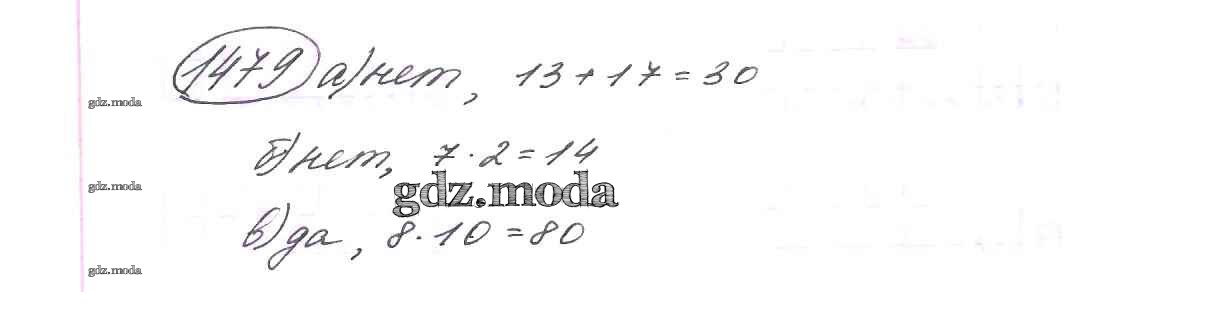 1479 а) нет, 13 + 17 = 30
gdz.moda
б) нет, 7 · 2 = 14
gdz.moda
gdz.moda
в) да, 8 · 10 = 80
gdz.moda